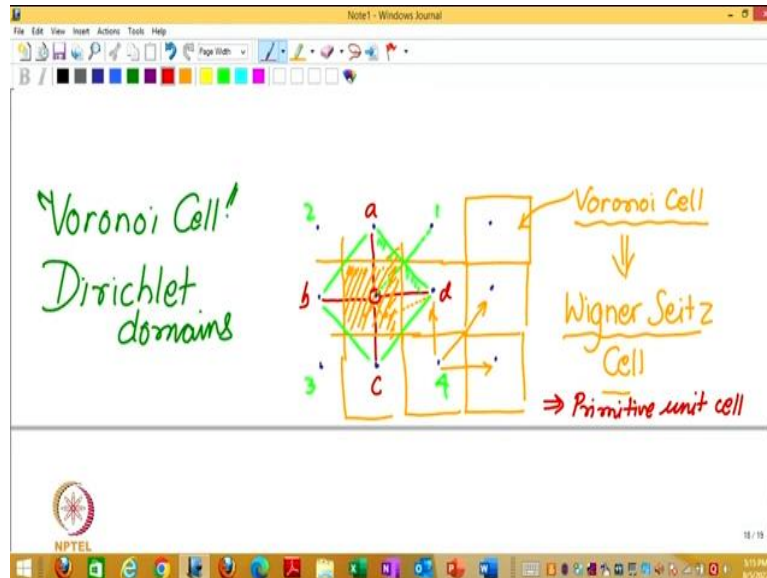 Note1 - Windows Journal
File Edit View Insert Actions Tools Help
Page Width
B I
"Voronoi Cell"
Dirichlet
domains
2
a
1
b
d
3
c
4
Voronoi Cell
⇓
Wigner Seitz
Cell
⇒ Primitive unit cell
NPTEL
18 / 19
5:15 PM